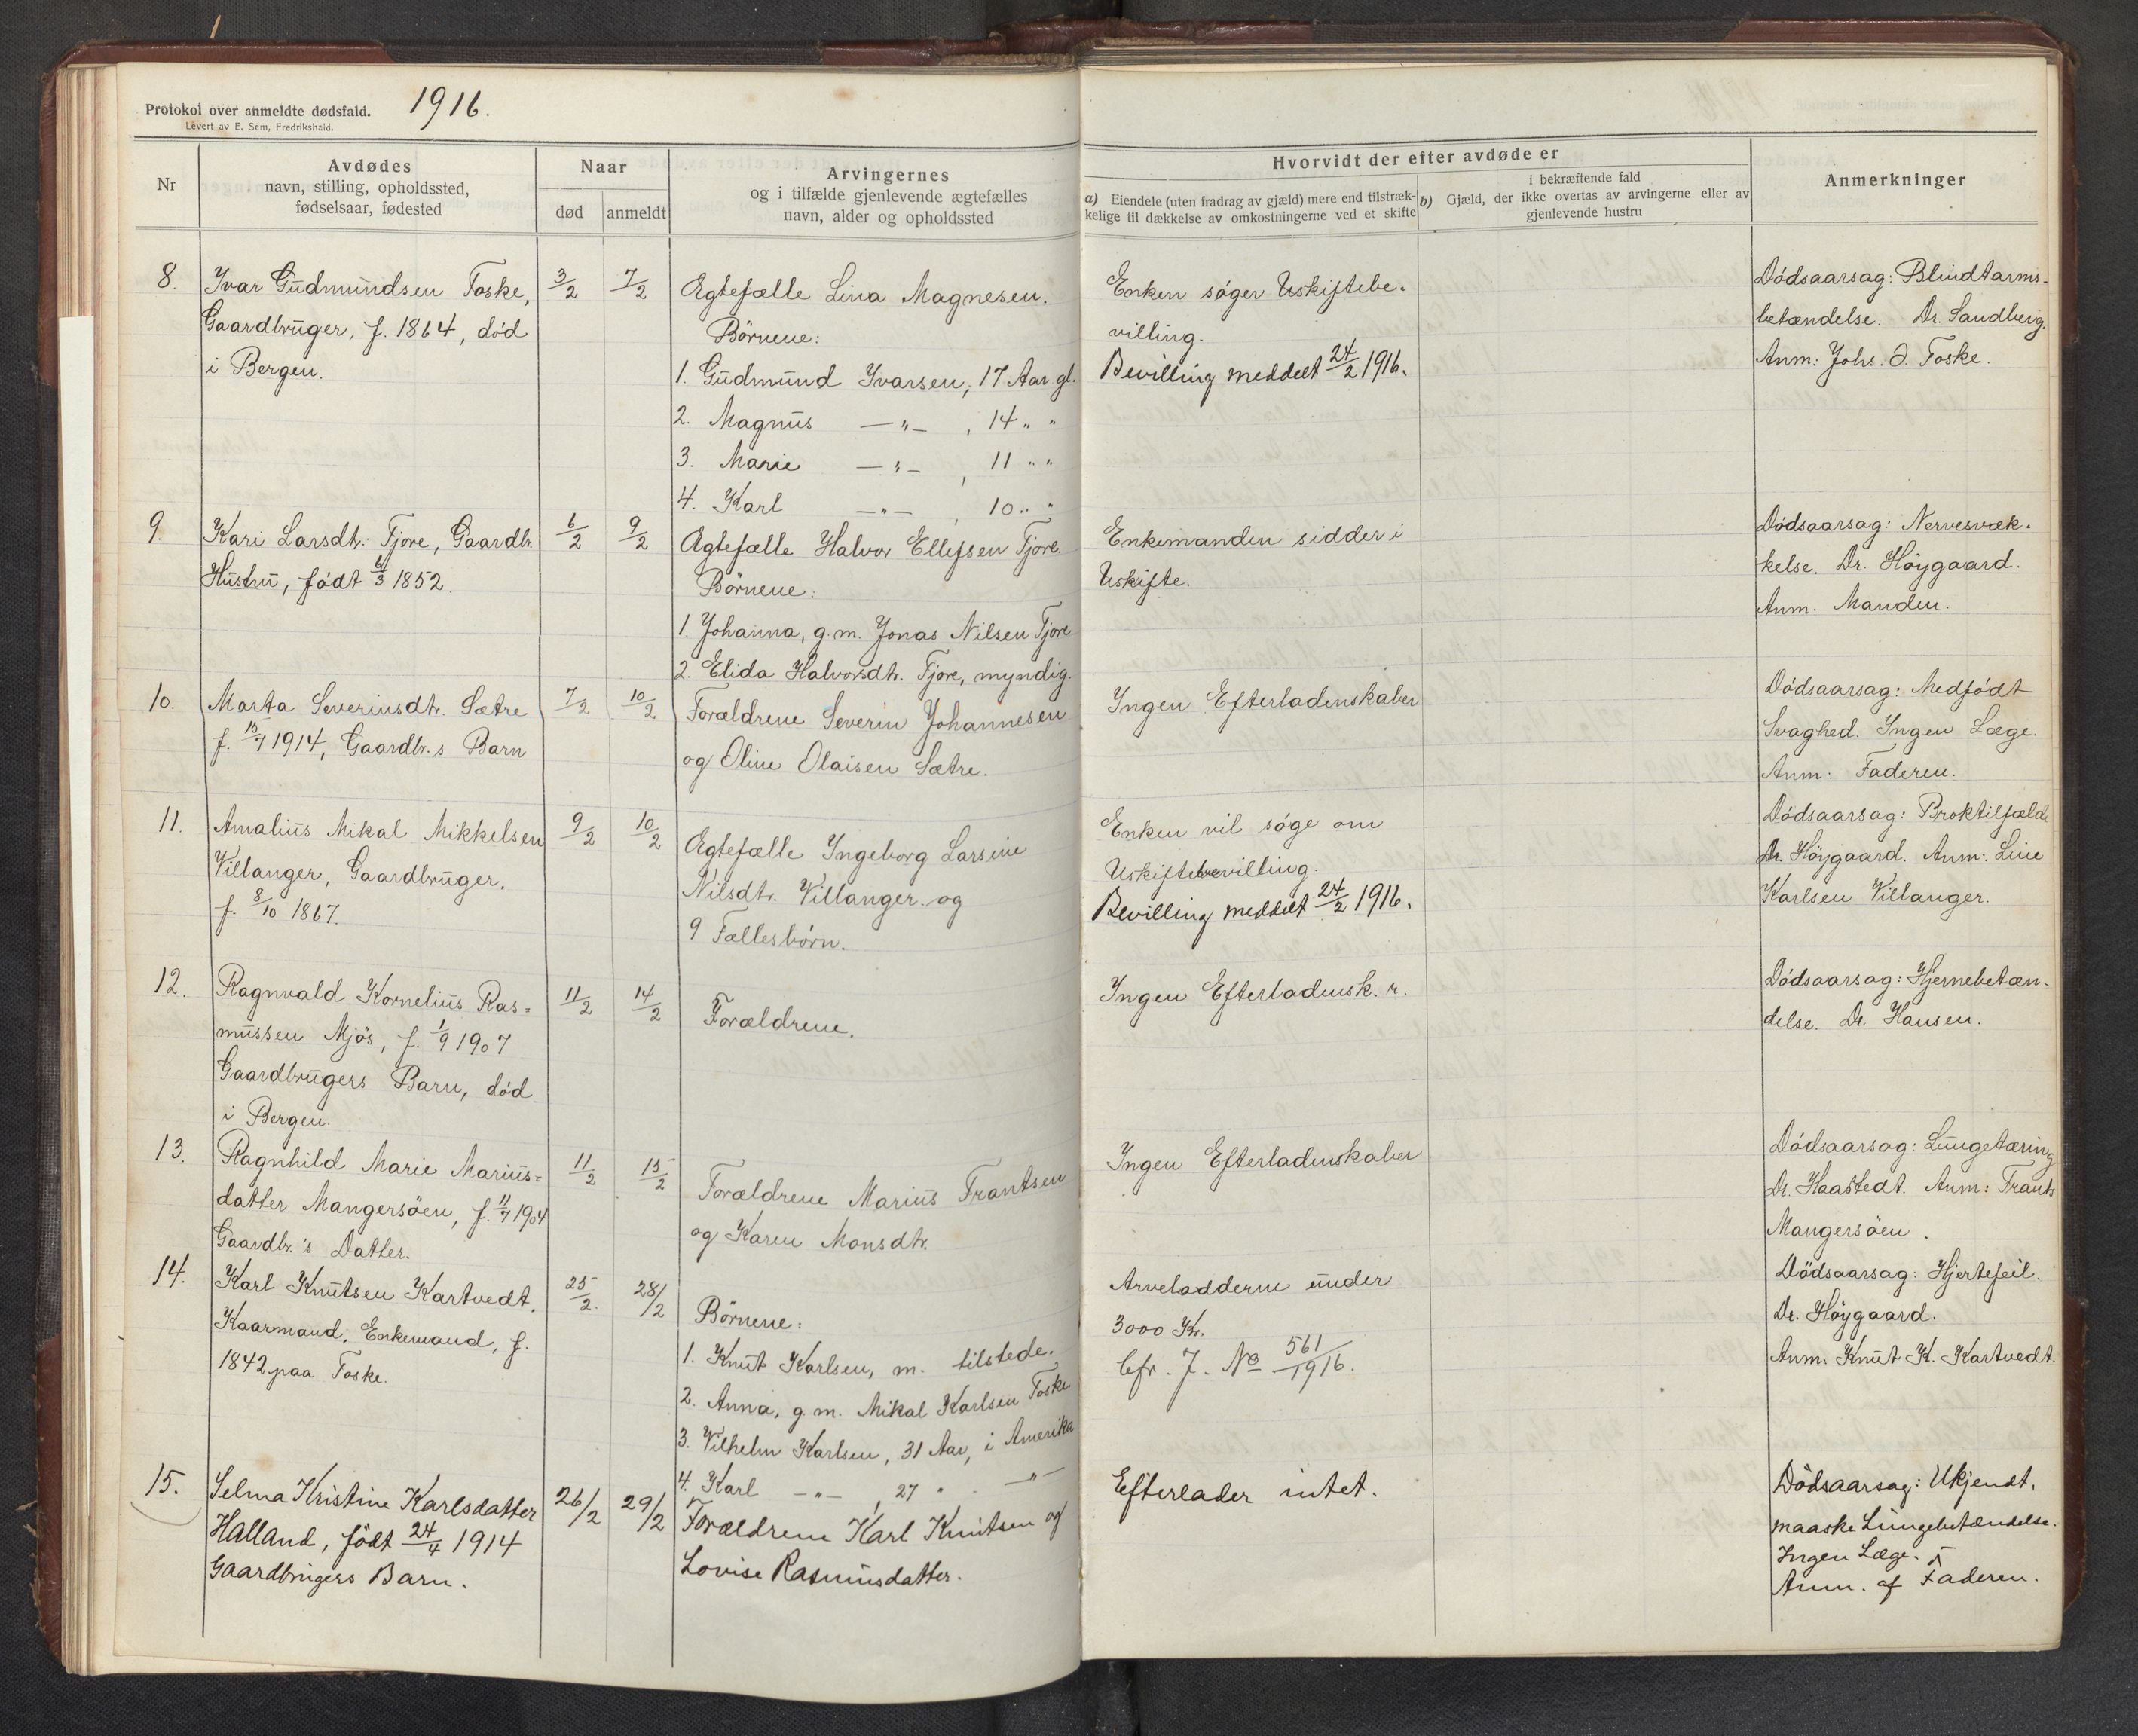 Protokol over anmeldte dødsfald. 1916.
Levert av E. Sem, Fredrikshald.
Nr
Avdødes
navn, stilling, opholdssted,
fødselsaar, fødested
Naar
død
anmeldt
Arvingernes
og i tilfælde gjenlevende ægtefælles
navn, alder og opholdssted
Hvorvidt der efter avdøde er
a) Eiendele (uten fradrag av gjæld) mere end tilstræk-
kelige til dækkelse av omkostningerne ved et skifte
i bekræftende fald
b) Gjæld, der ikke overtas av arvingerne eller av
gjenlevende hustru
Anmerkninger
8.
Ivar Gudmundsen Toske,
Gaardbruger, f. 1864, død
i Bergen.
3/2
7/2
Ægtefælle Lina Magnesen.
Børnene:
1. Gudmund Ivarsen, 17 Aar gl.
2. Magnus —"— , 14 " "
3. Marie —"— , 11 " "
4. Karl —"— , 10 " "
Enken søger Uskiftebe-
villing.
Bevilling meddelt 24/2 1916.
Dødsaarsag: Blindtarms-
betændelse. Dr. Sandberg.
Anm: Johs. J. Toske.
9.
Kari Larsdtr. Tjore, Gaardbr.
Hustru, født 6/3 1852.
6/2
9/2
Ægtefælle Halvor Ellefsen Tjore.
Børnene:
1. Johanna, g.m. Jonas Nilsen Tjore
2. Elida Halvorsdtr. Tjore, myndig.
Enkemanden sidder i
Uskifte.
Dødsaarsag: Nervesvæk-
kelse. Dr. Høygaard.
Anm. Manden.
10.
Marta Severinsdtr. Sætre
f. 15/7 1914, Gaardbr.s Barn
7/2
10/2
Forældrene Severin Johannesen
og Oline Olaisen Sætre.
Ingen Efterladenskaber
Dødsaarsag: Medfødt
Svaghed. Ingen Læge.
Anm: Faderen.
11.
Amalius Mikal Mikkelsen
Villanger, Gaardbruger.
f. 8/10 1867.
9/2
10/2
Ægtefælle Ingeborg Larsine
Nilsdtr. Villanger og
9 Fællesbørn.
Enken vil søge om
Uskiftebevilling.
Bevilling meddelt 24/2 1916.
Dødsaarsag: Broktilfælde
Dr. Høygaard. Anm: Line
Karlsen Villanger.
12.
Ragnvald Kornelius Ras=
mussen Mjøs, f. 1/9 1907
Gaardbrugers Barn, død
i Bergen.
11/2
14/2
Forældrene.
Ingen Efterladensk. r.
Dødsaarsag: Hjernebetæn-
delse. Dr. Hansen.
13.
Ragnhild Marie Marius=
datter Mangersøen, f. 11/7 1904
Gaardbr.'s Datter.
11/2
15/2
Forældrene Marius Frantsen
og Karen Monsdtr.
Ingen Efterladenskaber
Dødsaarsag: Lungetæring
Dr. Haastedt. Anm: Frants
Mangersøen.
14.
Karl Knutsen Kartvedt,
Kaarmand, Enkemand, f.
1842 paa Toske.
25/2.
28/2
Børnene:
1. Knut Karlsen, m. tilstede.
2. Anna, g.m. Mikal Karlsen Toske
3. Vilhelm Karlsen, 31 Aar, i Amerika
4. Karl —"— , 27 " —"—
Arveladderne under
3000 Kr.
Cfr. J. No 561/1916.
Dødsaarsag: Hjertefeil.
Dr. Høygaard.
Anm: Knut K. Kartvedt.
15.
Selma Kristine Karlsdatter
Halland, født 24/4 1914
Gaardbrugers Barn.
26/2
29/2
Forældrene Karl Knutsen og
Lovise Rasmusdatter.
Efterlader intet.
Dødsaarsag: Ukjendt,
maaske Lungebetændelse.
Ingen Læge.
Anm. af Faderen.